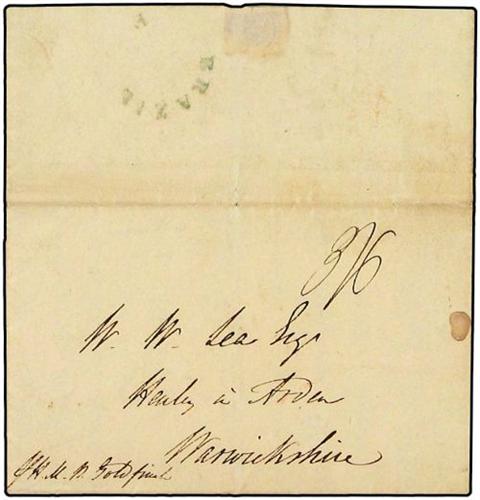 BRAZIL
3/6
W. W. Lea Esqr
Henley in Arden
Warwickshire
H. M. P. Goldfinch